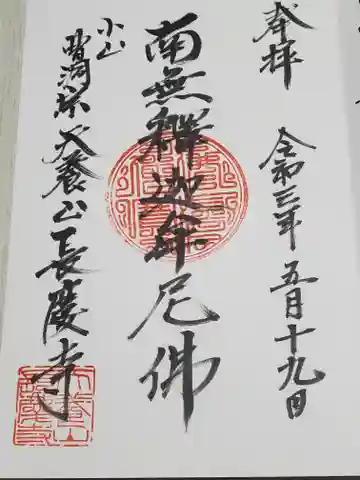 奉拝
令和三年五月十九日
南無釋迦牟尼佛
小山
曹洞宗天養山長慶寺